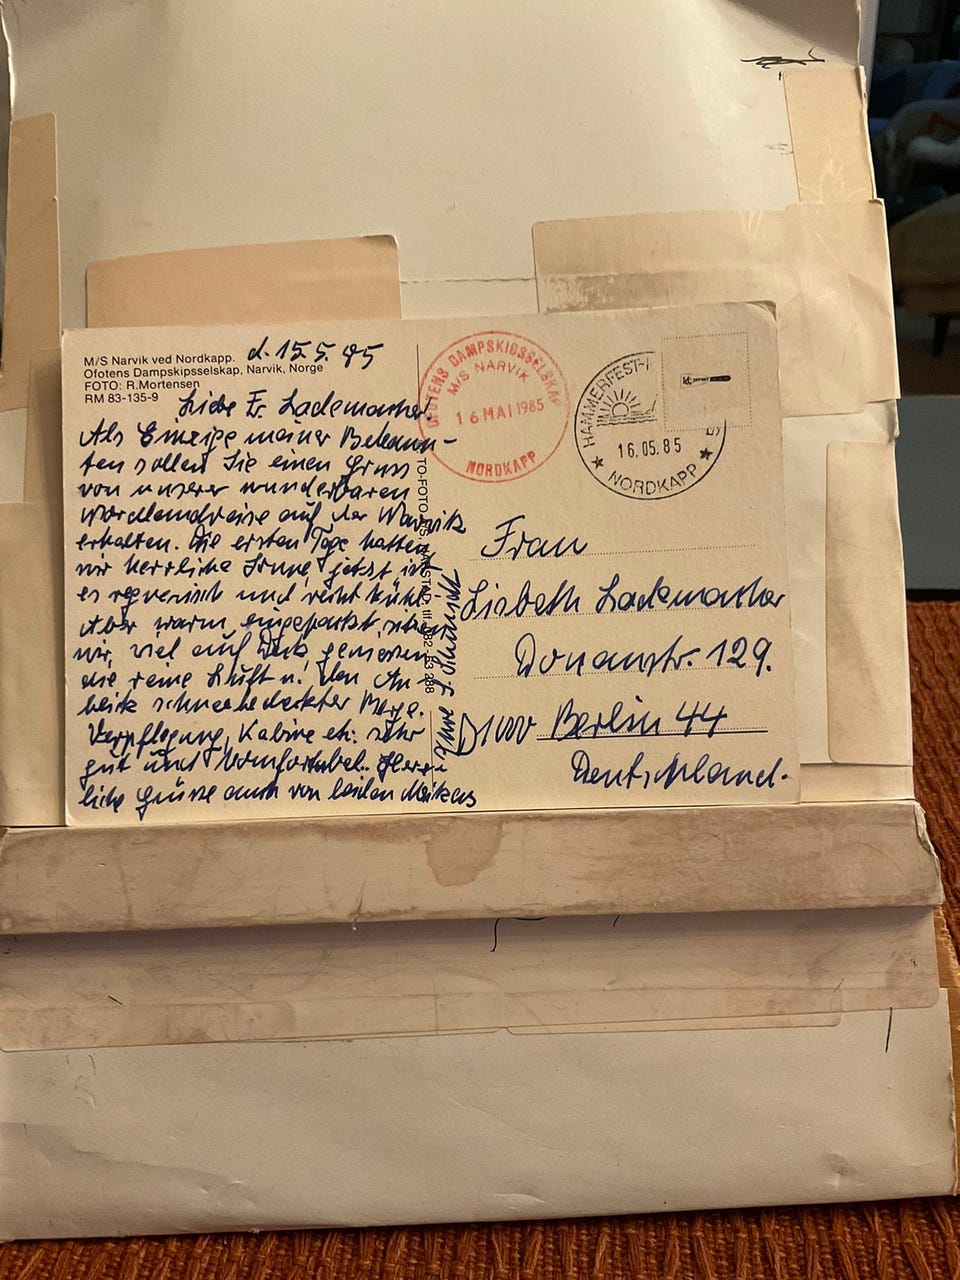 M/S Narvik ved Nordkapp.
Ofotens Dampskipsselskap, Narvik, Norge
FOTO: R.Mortensen
RM 83-135-9
d. 15.5.85
Liebe Fr. Lademacher.
Als Einzige meiner Bekann-
ten sollen Sie einen Gruss
von unserer wunderbaren
Nordlandreise auf der Narvik
erhalten. Die ersten Tage hatten
wir herrliche Sonne, jetzt ist
es regnerisch und recht kühl.
Aber warm eingepackt sitzen
wir viel auf Deck geniessen
die reine Luft u. den An-
blick schneebedeckter Berge.
Verpflegung, Kabine etc. sehr
gut und komfortabel. Herz-
liche Grüsse auch von beiden
Ihre
OFOTENS DAMPSKIBSSELSKAP
M/S NARVIK
16 MAI 1985
NORDKAPP
HAMMERFEST
16.05.85
NORDKAPP
Frau
Lisbeth Lademacher
Donaustr. 129.
D1000 Berlin 44
Deutschland.